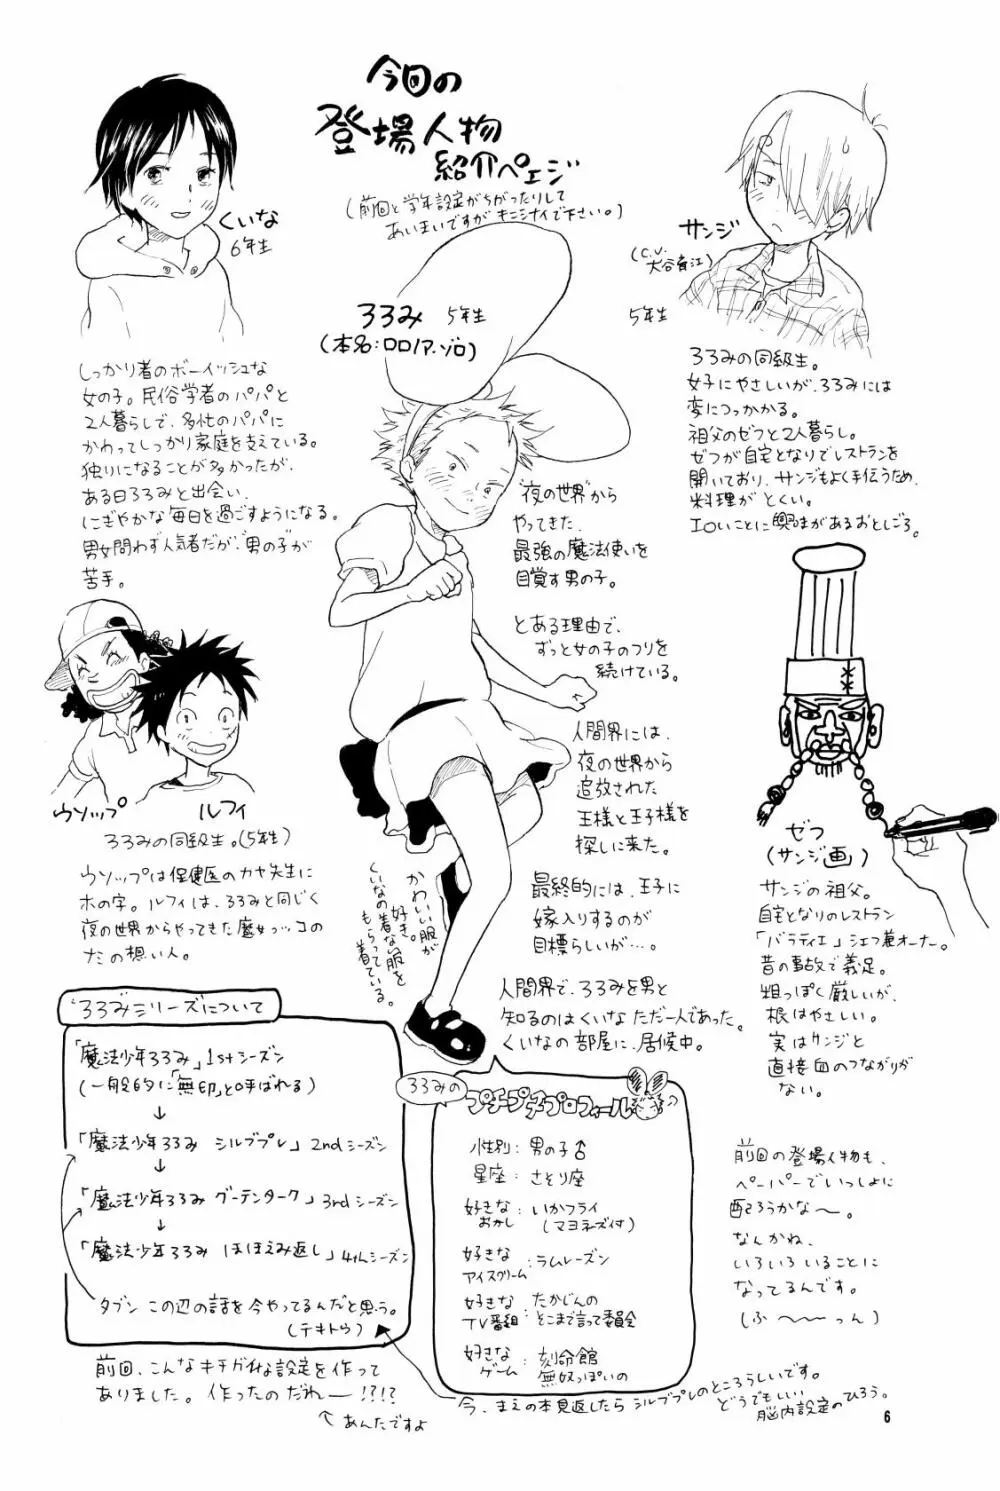 今回の
登場人物
紹介ペェジ
(前回と学年設定がちがったりして
あいまいですが キニシナイで下さい。)
くいな
6年生
しっかり者のボーイッシュな
女の子。民俗学者のパパと
2人暮らしで、多忙のパパに
かわってしっかり家庭を支えている。
独りになることが多かったが、
ある日ろろみと出会い、
にぎやかな毎日を過ごすようになる。
男女問わず人気者だが、"男の子"が
苦手。
サンジ
(C.V.
大谷育江)
5年生
ろろみの同級生。
女子にやさしいが、ろろみには
変につっかかる。
祖父のゼフと2人暮らし。
ゼフが自宅となりでレストランを
開いており、サンジもよく手伝うため、
料理がとくい。
エロいことに興味があるおとしごろ。
ろろみ 5年生
(本名:ロロノア・ゾロ)
"夜の世界"から
やってきた、
最強の魔法使いを
目覚す男の子。
とある理由で、
ずっと女の子のフリを
続けている。
人間界には、
夜の世界から
追放された
王様と王子様を
探しに来た。
最終的には、王子に
嫁入りするのが
目標らしいが…。
人間界で、ろろみを男と
知るのはくいなただ一人であった。
くいなの部屋に、居候中。
かわいい服が
好き。
くいなの着ない服を
もらって着ている。
ウソップ
ルフィ
ろろみの同級生。(5年生)
ウソップは保健医のカヤ先生に
ホの字。ルフィは、ろろみと同じく
夜の世界からやってきた魔女っコの
ナミの想い人。
ゼフ
(サンジ画)
サンジの祖父。
自宅となりのレストラン
「バラティエ」シェフ兼オーナー。
昔の事故で義足。
粗っぽく厳しいが、
根はやさしい。
実はサンジと
直接血のつながりが
ない。
ろろみシリーズについて
「魔法少年ろろみ」1stシーズン
(一般的に「無印」と呼ばれる)
↓
「魔法少年ろろみ シルブプレ」2ndシーズン
↓
「魔法少年ろろみ グーテンターク」3rdシーズン
↓
「魔法少年ろろみ ほほえみ返し」4thシーズン
タブン この辺の話を今やってるんだと思う。
(テキトウ)
前回、こんなキチガイな設定を作って
ありました。作ったのだれー!?!?
↖あんたですよ
ろろみの
プチプチプロフィール♪
性別: 男の子♂
星座: さそり座
好きなおかし: いかフライ
(マヨネーズ付)
好きなアイスクリーム: ラムレーズン
好きなTV番組: たかじんの
そこまで言って委員会
好きなゲーム: 刻命館
無双っぽいの
今、まえの本見返したら シルブプレのところらしいです。
どうでもいい
脳内設定のひろう。
前回の登場人物も、
ペーパーでいっしょに
配ろうかな〜。
なんかね、
いろいろいることに
なってるんです。
(ふ〜〜っん)
6